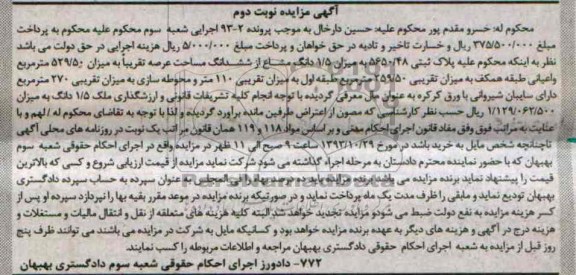 آگهی مزایده نوبت دوم
محکوم له: خسرو مقدم پور محکوم علیه: حسین دارخال به موجب پرونده 2-93 اجرایی شعبه سوم محکوم علیه محکوم به پرداخت
مبلغ 375/500/000 ریال و خسارت تاخیر و تادیه در حق خواهان و پرداخت مبلغ 5/000/000 ریال هزینه اجرایی در حق دولت می باشد
نظر به اینکه محکوم علیه پلاک ثبتی 5650/48 به میزان 1/5 دانگ مشاع از ششدانگ مساحت عرصه تقریباً به میزان 529/50
واعیانی طبقه همکف به میزان تقریبی 259/50 مترمربع طبقه اول به میزان تقریبی 110 متر و محوطه سازی به میزان تقریبی 270 مترمربع
دارای سایبان شیروانی با ورق کرکره به عنوان مال معرفی گردیده با توجه انجام کلیه تشریفات قانونی و ارزشگذاری ملک 1/5 دانگ به میزان
1/129/062/500 ریال حسب نظر کارشناسی که مصون از اعتراض طرفین مانده برآورد گردیده و لذا با توجه به تقاضای محکوم له / لهم و با
عنایت به مراتب فوق وفق مفاد قانون اجرای احکام مدنی و بر اساس مواد 118 و 119 همان قانون مراتب یک نوبت در روزنامه های محلی آگهی
تاچنانچه شخص مایل به خرید باشد در مورخ 1393/10/29 ساعت 9 صبح الی 11 ظهر در مزایده واقع در اجرای احکام حقوقی شعبه سوم
بهبهان که با حضور نماینده محترم دادستان به مرحله اجراء گذاشته می شود شرکت نماید مزایده از قیمت ارزیابی شروع و کسی که بالاترین
قیمت را پیشنهاد نماید برنده مزایده می باشد برنده مزایده باید ده درصد بهاء را فی المجلس به عنوان سپرده به حساب سپرده دادگستری
بهبهان تودیع نماید و مابقی را ظرف مدت یک ماه پرداخت نماید و در صورتیکه برنده مزایده در موعد مقرر بقیه بها را نپردازد سپرده او پس از
کسر هزینه مزایده به نفع دولت ضبط می شود و مزایده تجدید خواهد شد البته کلیه هزینه های متعلقه از نقل و انتقال مالیات و مستغلات و
هزینه درج در آگهی و هزینه های دیگر به عهده برنده مزایده خواهد بود و کسانیکه مایل به شرکت در مزایده می باشند می توانند ظرف پنج
روز قبل از مزایده به شعبه اجرای احکام حقوقی دادگستری بهبهان مراجعه و اطلاعات مربوطه را کسب نمایند.
772- دادورز اجرای احکام حقوقی شعبه سوم دادگستری بهبهان